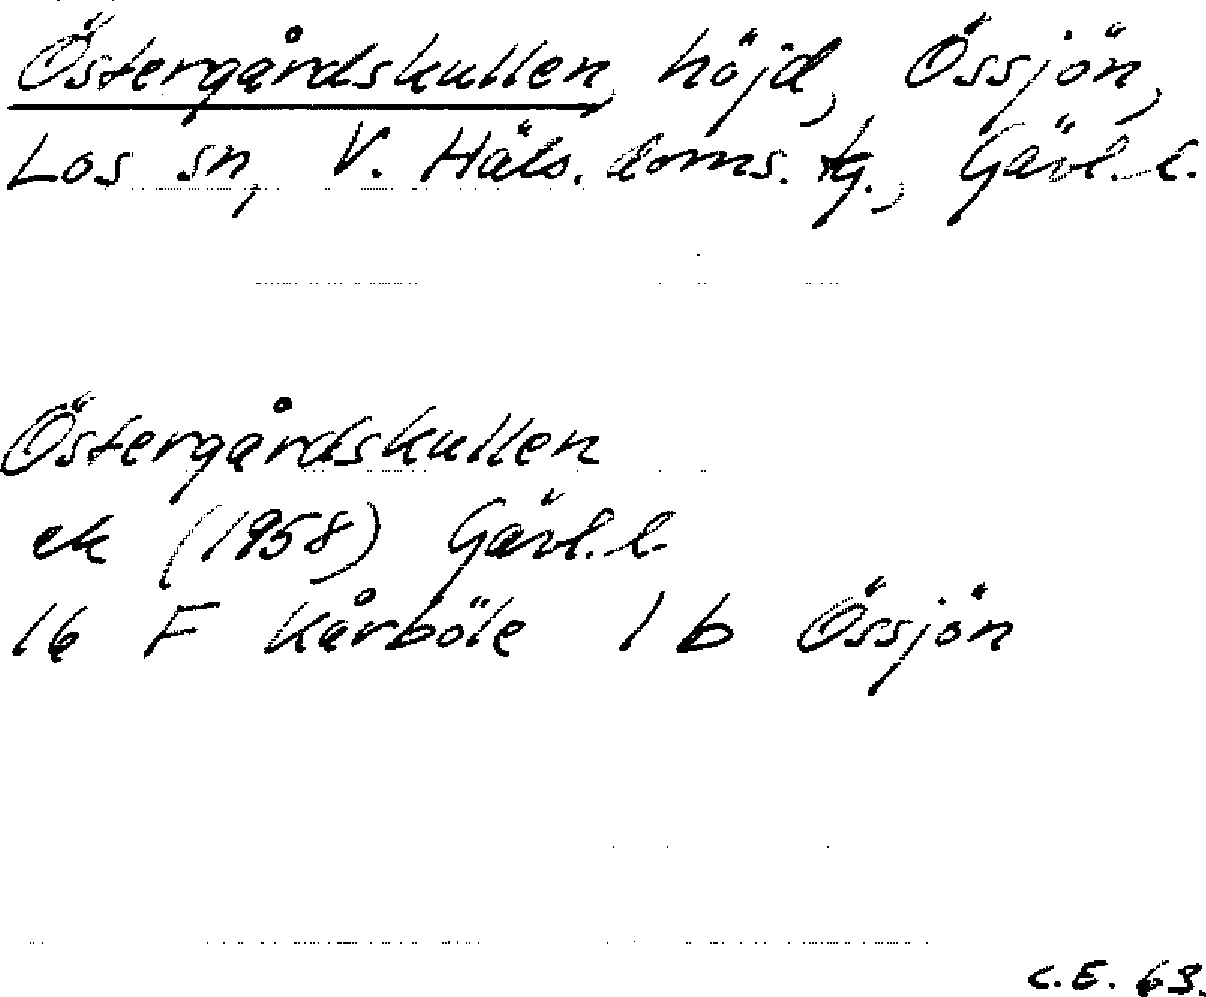 Östergårdskullen, höjd, Össjön,
Los sn, V. Häls. doms. tg., Gävl. l.
Östergårdskullen
ek (1958) Gävl. l.
16 F Kårböle 1 b Össjön
C.E. 63.